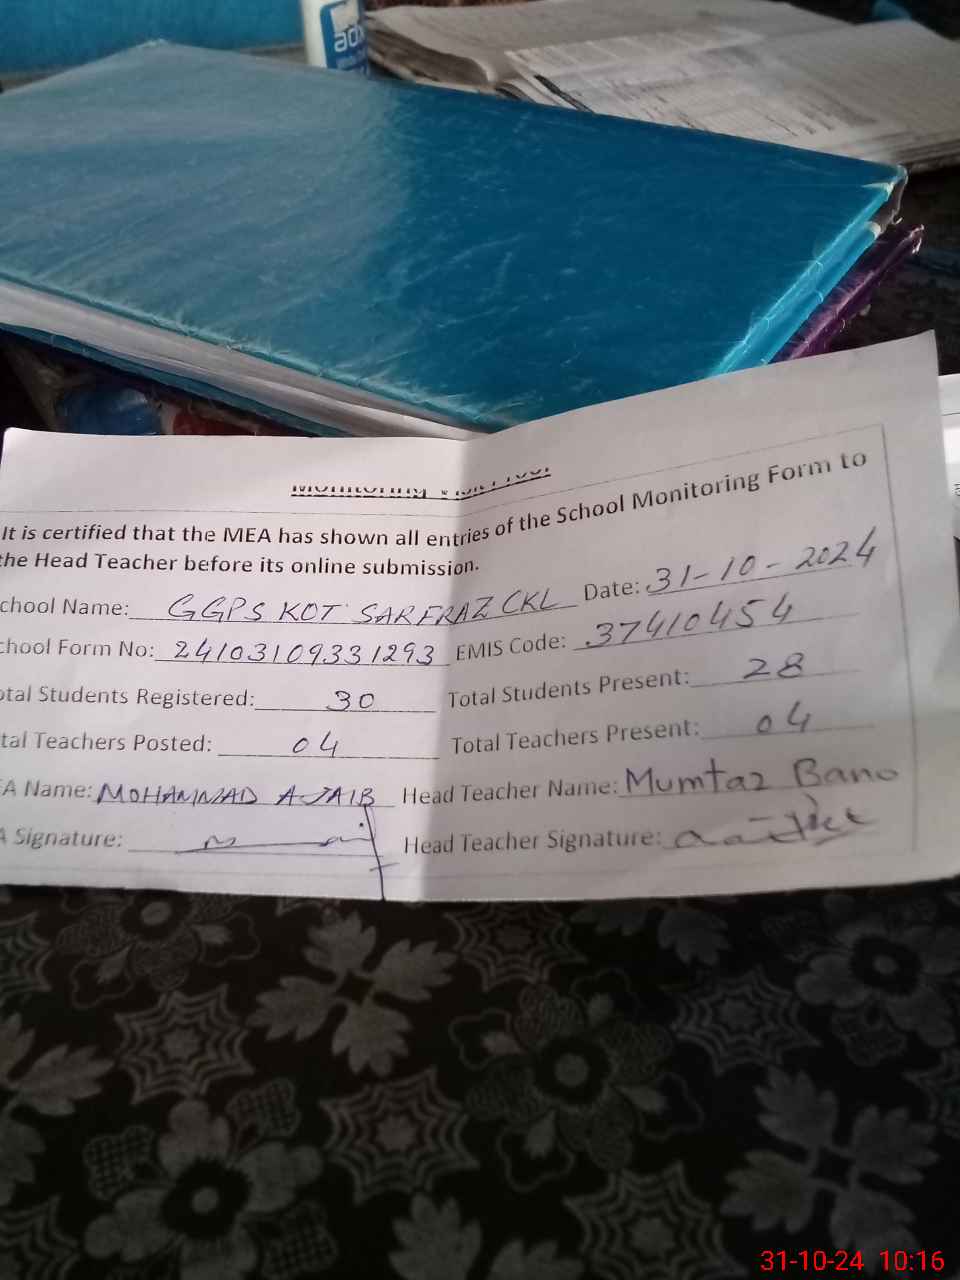 adx
Monitoring Visit Proof
It is certified that the MEA has shown all entries of the School Monitoring Form to
the Head Teacher before its online submission.
chool Name: GGPS KOT SARFRAZ CKL Date: 31-10-2024
chool Form No: 24103109331293 EMIS Code: 37410454
otal Students Registered: 30 Total Students Present: 28
tal Teachers Posted: 04 Total Teachers Present: 04
EA Name: MOHAMMAD AJAIB Head Teacher Name: Mumtaz Bano
A Signature: Head Teacher Signature:
31-10-24 10:16